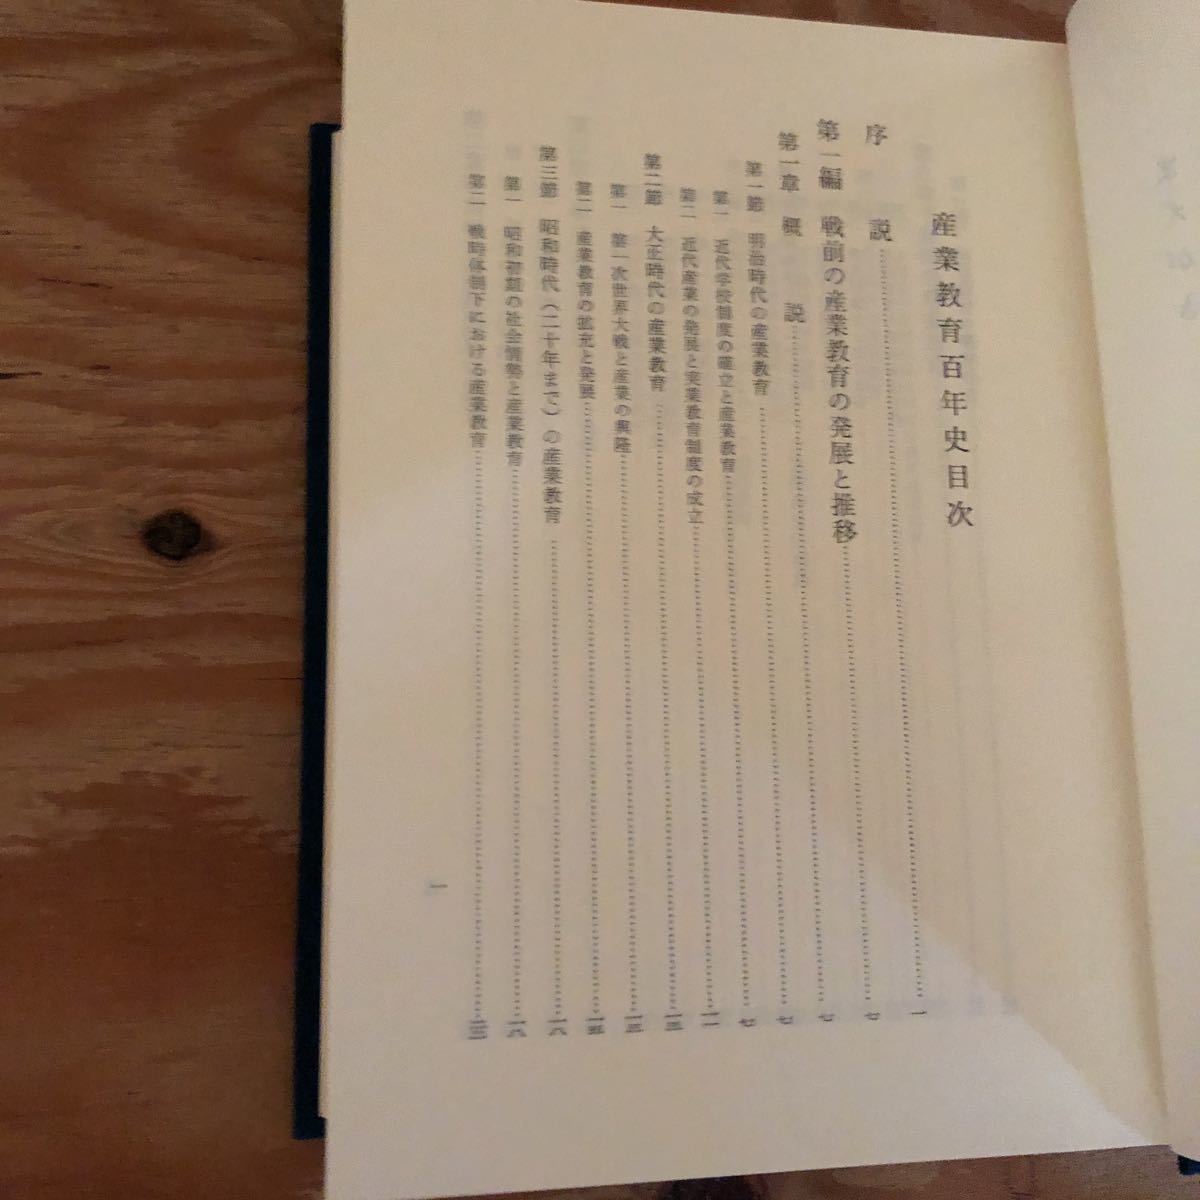 産業教育百年史目次
序 説……一
第一編 戦前の産業教育の発展と推移……七
第一章 概 説……七
第一節 明治時代の産業教育……七
第一 近代学校制度の確立と産業教育……七
第二 近代産業の発展と実業教育制度の成立……一一
第二節 大正時代の産業教育……一三
第一 第一次世界大戦と産業の興隆……一三
第二 産業教育の拡充と発展……一五
第三節 昭和時代（二十年まで）の産業教育……一八
第一 昭和初期の社会情勢と産業教育……一八
第二 戦時体制下における産業教育……
一